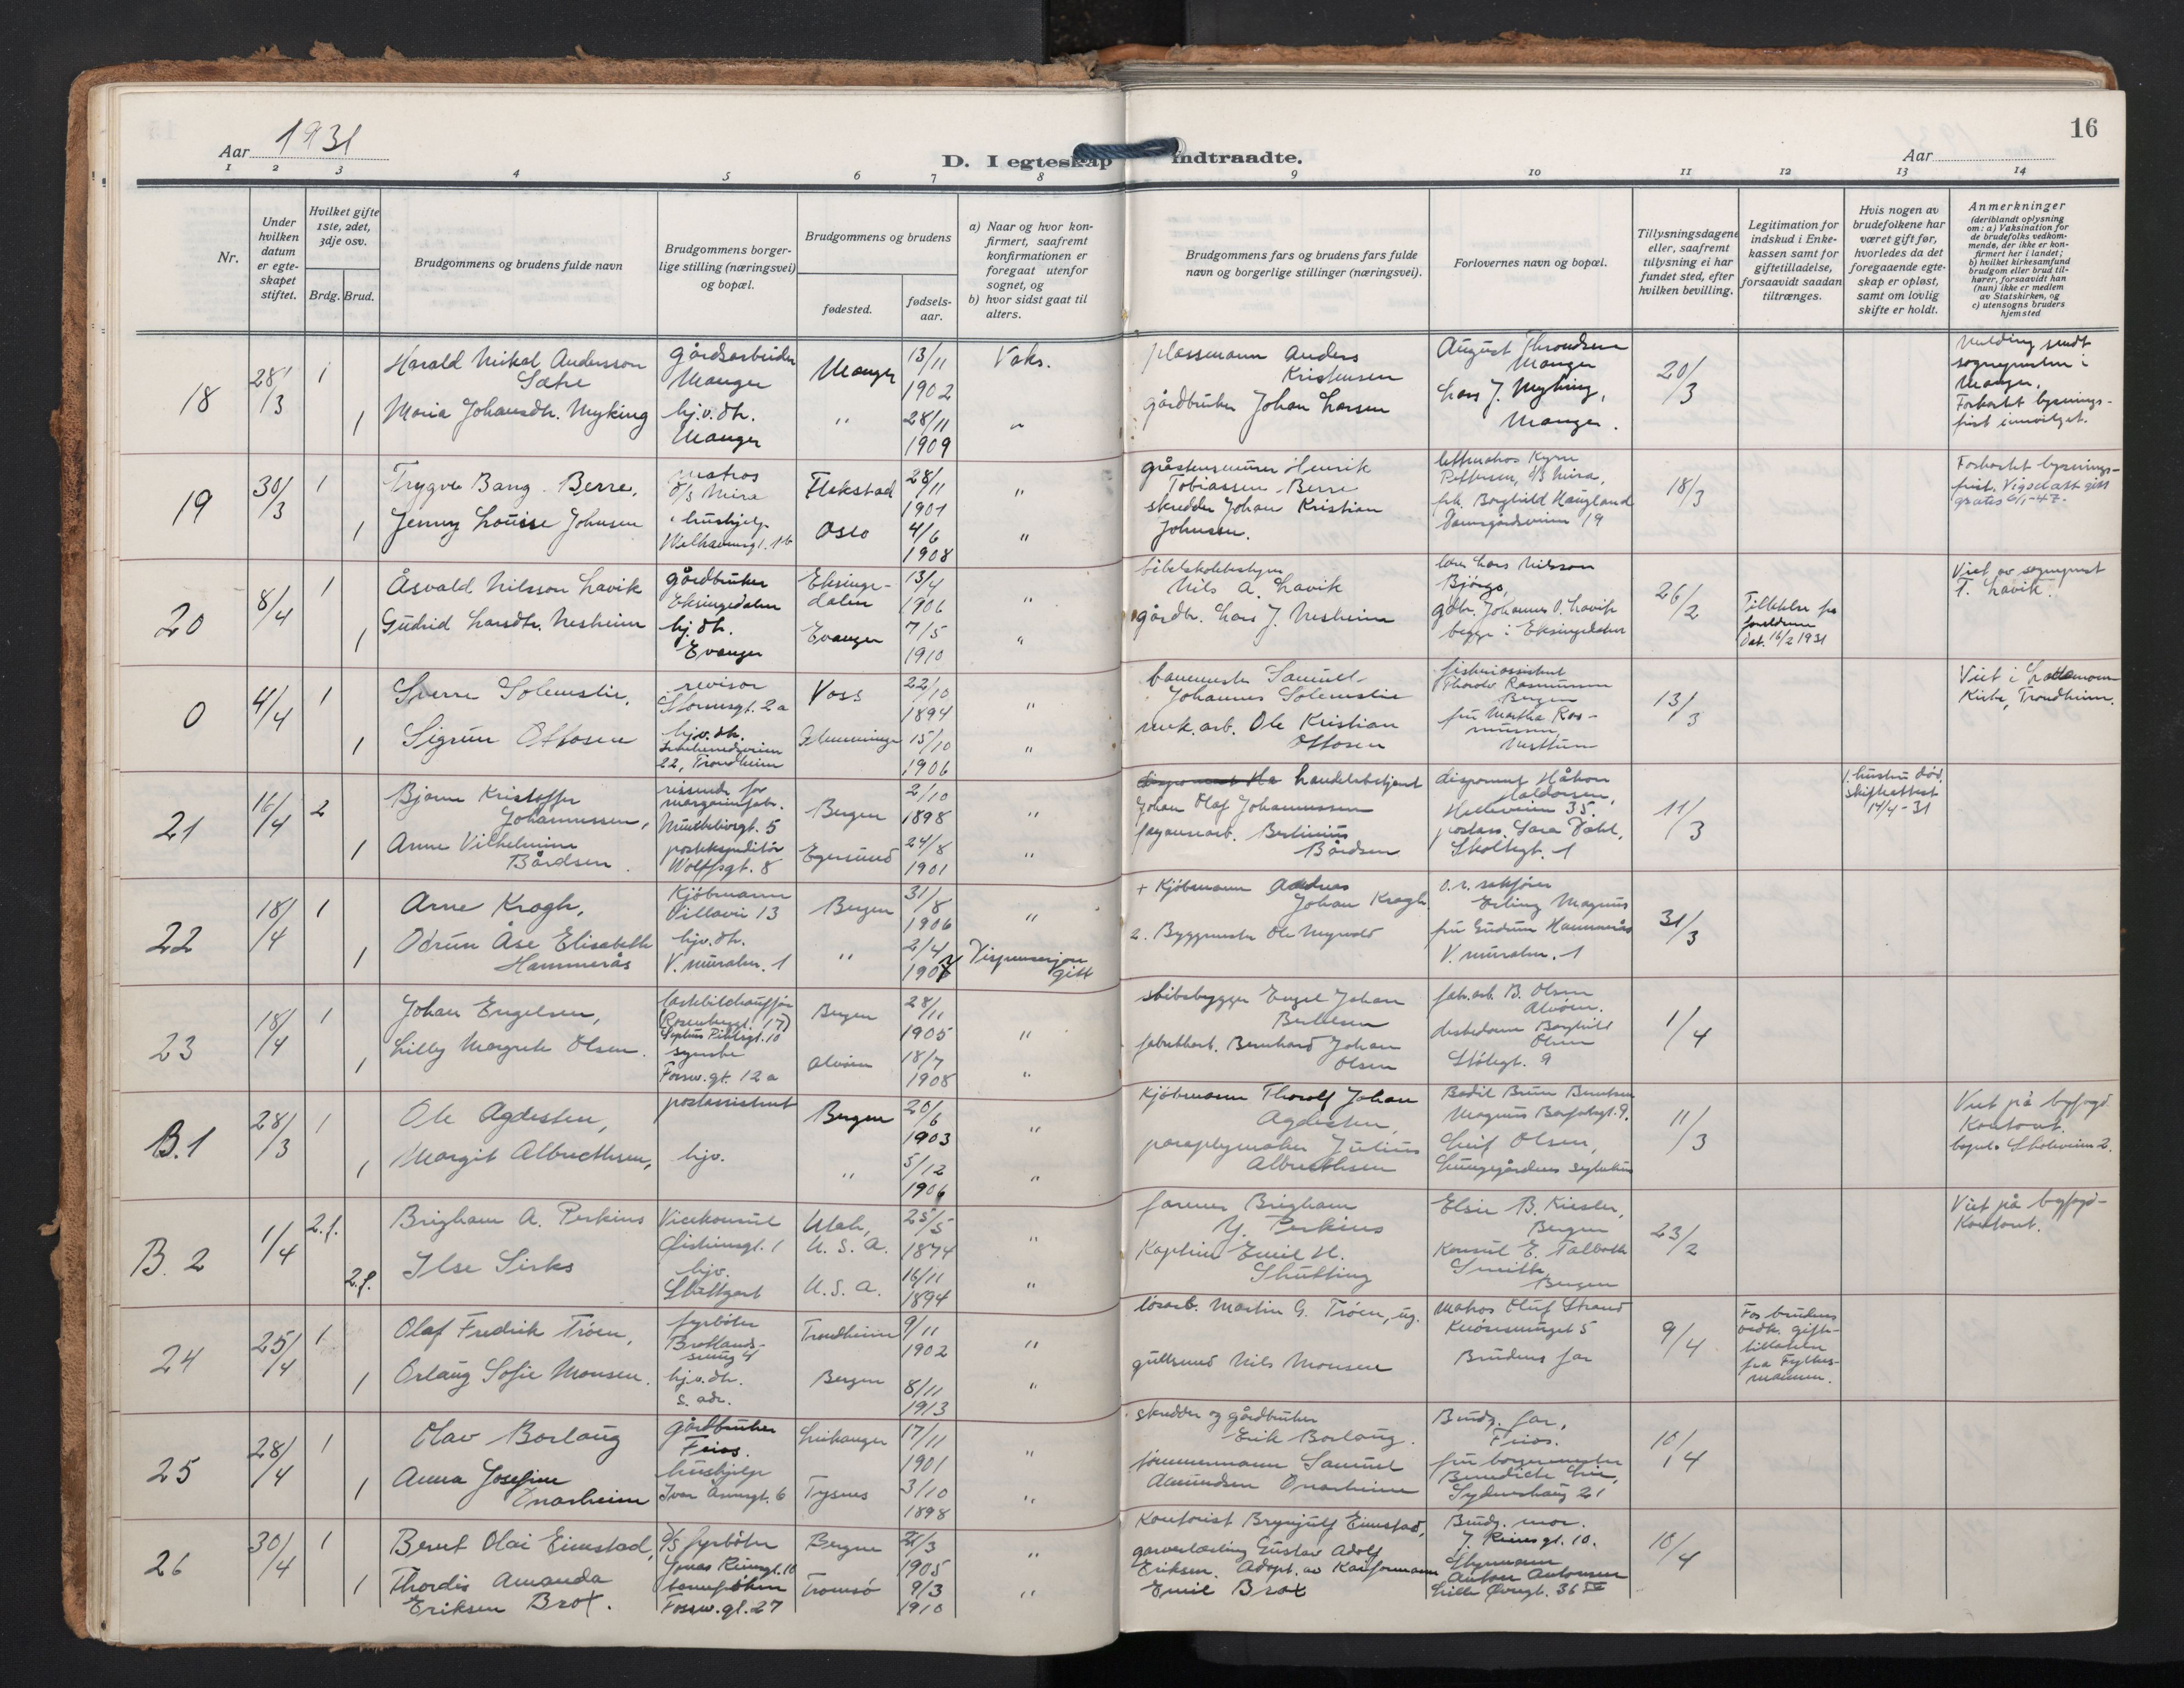 Aar 1931
D. I egteskap indtraadte.
Aar
16
1 2 3 4 5 6 7 8 9 10 11 12 13 14
Nr.
Under hvilken datum er egteskapet stiftet.
Hvilket gifte 1ste, 2det, 3dje osv.
Brdg. Brud.
Brudgommens og brudens fulde navn
Brudgommens borgerlige stilling (næringsvei) og bopæl.
Brudgommens og brudens
fødested.
fødselsaar.
a) Naar og hvor konfirmert, saafremt konfirmationen er foregaat utenfor sognet, og
b) hvor sidst gaat til alters.
Brudgommens fars og brudens fars fulde navn og borgerlige stillinger (næringsvei).
Forlovernes navn og bopæl.
Tillysningsdagene eller, saafremt tillysning ei har fundet sted, efter hvilken bevilling.
Legitimation for indskud i Enkekassen samt for giftetilladelse, forsaavidt saadan tiltrænges.
Hvis nogen av brudefolkene har været gift før, hvorledes da det foregaaende egteskap er opløst, samt om lovlig skifte er holdt.
Anmerkninger
(deriblandt oplysning om: a) Vaksination for de brudefolks vedkommende, der ikke er konfirmert her i landet;
b) hvilket kirkesamfund brudgom eller brud tilhører, forsaavidt han (hun) ikke er medlem av Statskirken, og
c) utensogns bruders hjemsted
18 28/3 1 Harald Mikal Andersson Sætre gårdsarbeider Manger Manger 13/11 1902 Vaks. plassmann Anders Kristensen August Throndsen Manger 20/3 Melding sendt sognepresten i Manger. Forkortet lysningsfrist innvilget.
1 Maria Johansdtr. Myking hj.v.dtr. Manger " 28/11 1909 " gårdbruker Johan Larsen Lars J. Myking, Manger.
19 30/3 1 Trygve Bang Berre, matros D/S Mira Flekstad 28/11 1901 " Henrik Tobiassen Berre Pettersen, D/S Mira, 18/3 Forkortet lysningsfrist. Vigselatt. gitt gratis 6/1-47.
1 Jenny Louise Johnsen hushjelp Welhavensgt. 16 Oslo 4/6 1908 " skredder Johan Kristian Johnsen. frk. Borghild Haugland Damsgårdsveien 19
20 8/4 1 Åsvald Nilsson Lavik gårdbruker Eksingedalen Eksingedalen 13/4 1906 " bibelskolebestyrer Nils A. Lavik Lars Nilsson Bjørgo, 26/2 Viet av sogneprest F. Lavik.
1 Gudrid Larsdtr. Nesheim hj. dtr. Evanger Evanger 7/5 1910 " gårdbr. Lars J. Nesheim gdbr. Johannes O. Lavik begge i Eksingedalen Tillatelse fra foreldrene dat. 16/2 1931
0 4/4 1 Sverre Solemslie, revisor Stormsgt. 2a Voss 22/10 1894 " banemester Samuel Johannes Solemslie fiskeriassistent Thorolv Rasmussen Bergen 13/3 Viet i Lademoen Kirke, Trondheim.
1 Sigrun Ottosen hjv. dtr. 22, Trondheim 15/10 1906 " mek. arb. Ole Kristian Ottosen fru Martha Rasmussen Nesttun
21 16/4 2 Bjarne Kristoffer Johannessen, reisende for margarinfabr. 5 Bergen 2/10 1898 " handelsbetjent Johan Olaf Johannessen disponent Håkon Haldorsen, Helleveien 35. 11/3 1. hustru død. skifteattest 14/4-31
1 Anne Vilhelmine Bårdsen postekspeditør Wolffsgt. 8 Egersund 24/8 1901 " fayansearb. Bertinius Bårdsen postass. Sara Dahl, Skoltegt. 1
22 18/4 1 Arne Krogh, Kjøbmann Villavei 13 Bergen 31/8 1906 " + Kjøbmann Andreas Johan Krogh o.r. sakfører Erling Magnus 31/3
1 Odrun Åse Elisabeth Hammerås hjv. dtr. V. muralm. 1 " 2/4 1907 Dispensasjon gitt 2. Byggmester Ole Myrvold fru Gudrun Hammerås V. muralm. 1
23 18/4 1 Johan Engelsen, lastebilchauffør (Rosenbergt. 17) Sophus Pihlsgt. 10 Bergen 28/11 1905 " skibsbygger Engel Johan Bertelsen fab.arb. B. Olsen Alvøen. 1/4
1 Lilly Margrete Olsen. syerske Fossw.gt. 12a Alvøen 18/7 1908 " fabrikkarb. Bernhard Johan Olsen Borghild Olsen Stølegt. 9
B.1 28/3 1 Ole Agdesten, postassistent Bergen 20/6 1903 " Kjøbmann Thorolf Johan Agdesten, Bodil Brun Berntsen Magnus Barfotsgt. 9. 11/3 Viet på byfogdkontoret. bopel Skoleveien 2.
1 Margit Albrethsen, hjv. " 5/12 1906 " paraplymaker Julius Albrethsen Leif Olsen, Lungegårdens sykehus
B. 2 1/4 2.f. Brigham A. Perkins Vicekonsul Øisteinsgt. 1 Utah, U.S.A. 25/5 1874 " farmer Brigham Y. Perkins Elsie B. Kiesler, Bergen 23/2 Viet på byfogdkontoret.
2.f. Ilse Sirks hjv. Stuttgart U.S.A. 16/11 1894 " Kaptein Emil H. Shutting Konsul E. Talbott Smith Bergen
24 25/4 1 Olaf Fredrik Trøen, fyrbøter 4 Trondheim 9/11 1902 " løsarb. Martin G. Trøen, ug. matros Oluf Strand Knøsesmuget 5 9/4 For brudens vedk. giftetillatelse fra Fylkesmannen.
1 Orlaug Sofie Monsen. hj.v. dtr. s. adr. Bergen 8/11 1913 " gullsmed Nils Monsen Brudens far
25 28/4 1 Olav Borlaug gårdbruker Feios. Leikanger 17/11 1901 " skredder og gårdbruker Erik Borlaug. Brudg. far, Feios. 10/4
1 Anna Josefine Onarheim hushjelp Ivar Aasensgt. 6 Tysnes 3/10 1898 " tømmermann Samuel Amundsen Onarheim fru borgermester Benedicte Lie, Sydneshaug 21
26 30/4 1 Bernt Olai Eimstad, D/S fyrbøter Jonas Reinsgt. 10 Bergen 21/3 1905 " Kontorist Brynjulf Eimstad, Brudg. mor. J. Reinsgt. 10. 10/4
1 Thordis Amanda Eriksen Brox. Fossw.gt. 27 Tromsø 9/3 1910 " garverlærling Gustav Adolf Eriksen. Adopt. av Emil Brox Styrmann Anton Antonsen Lille Øvregt. 36